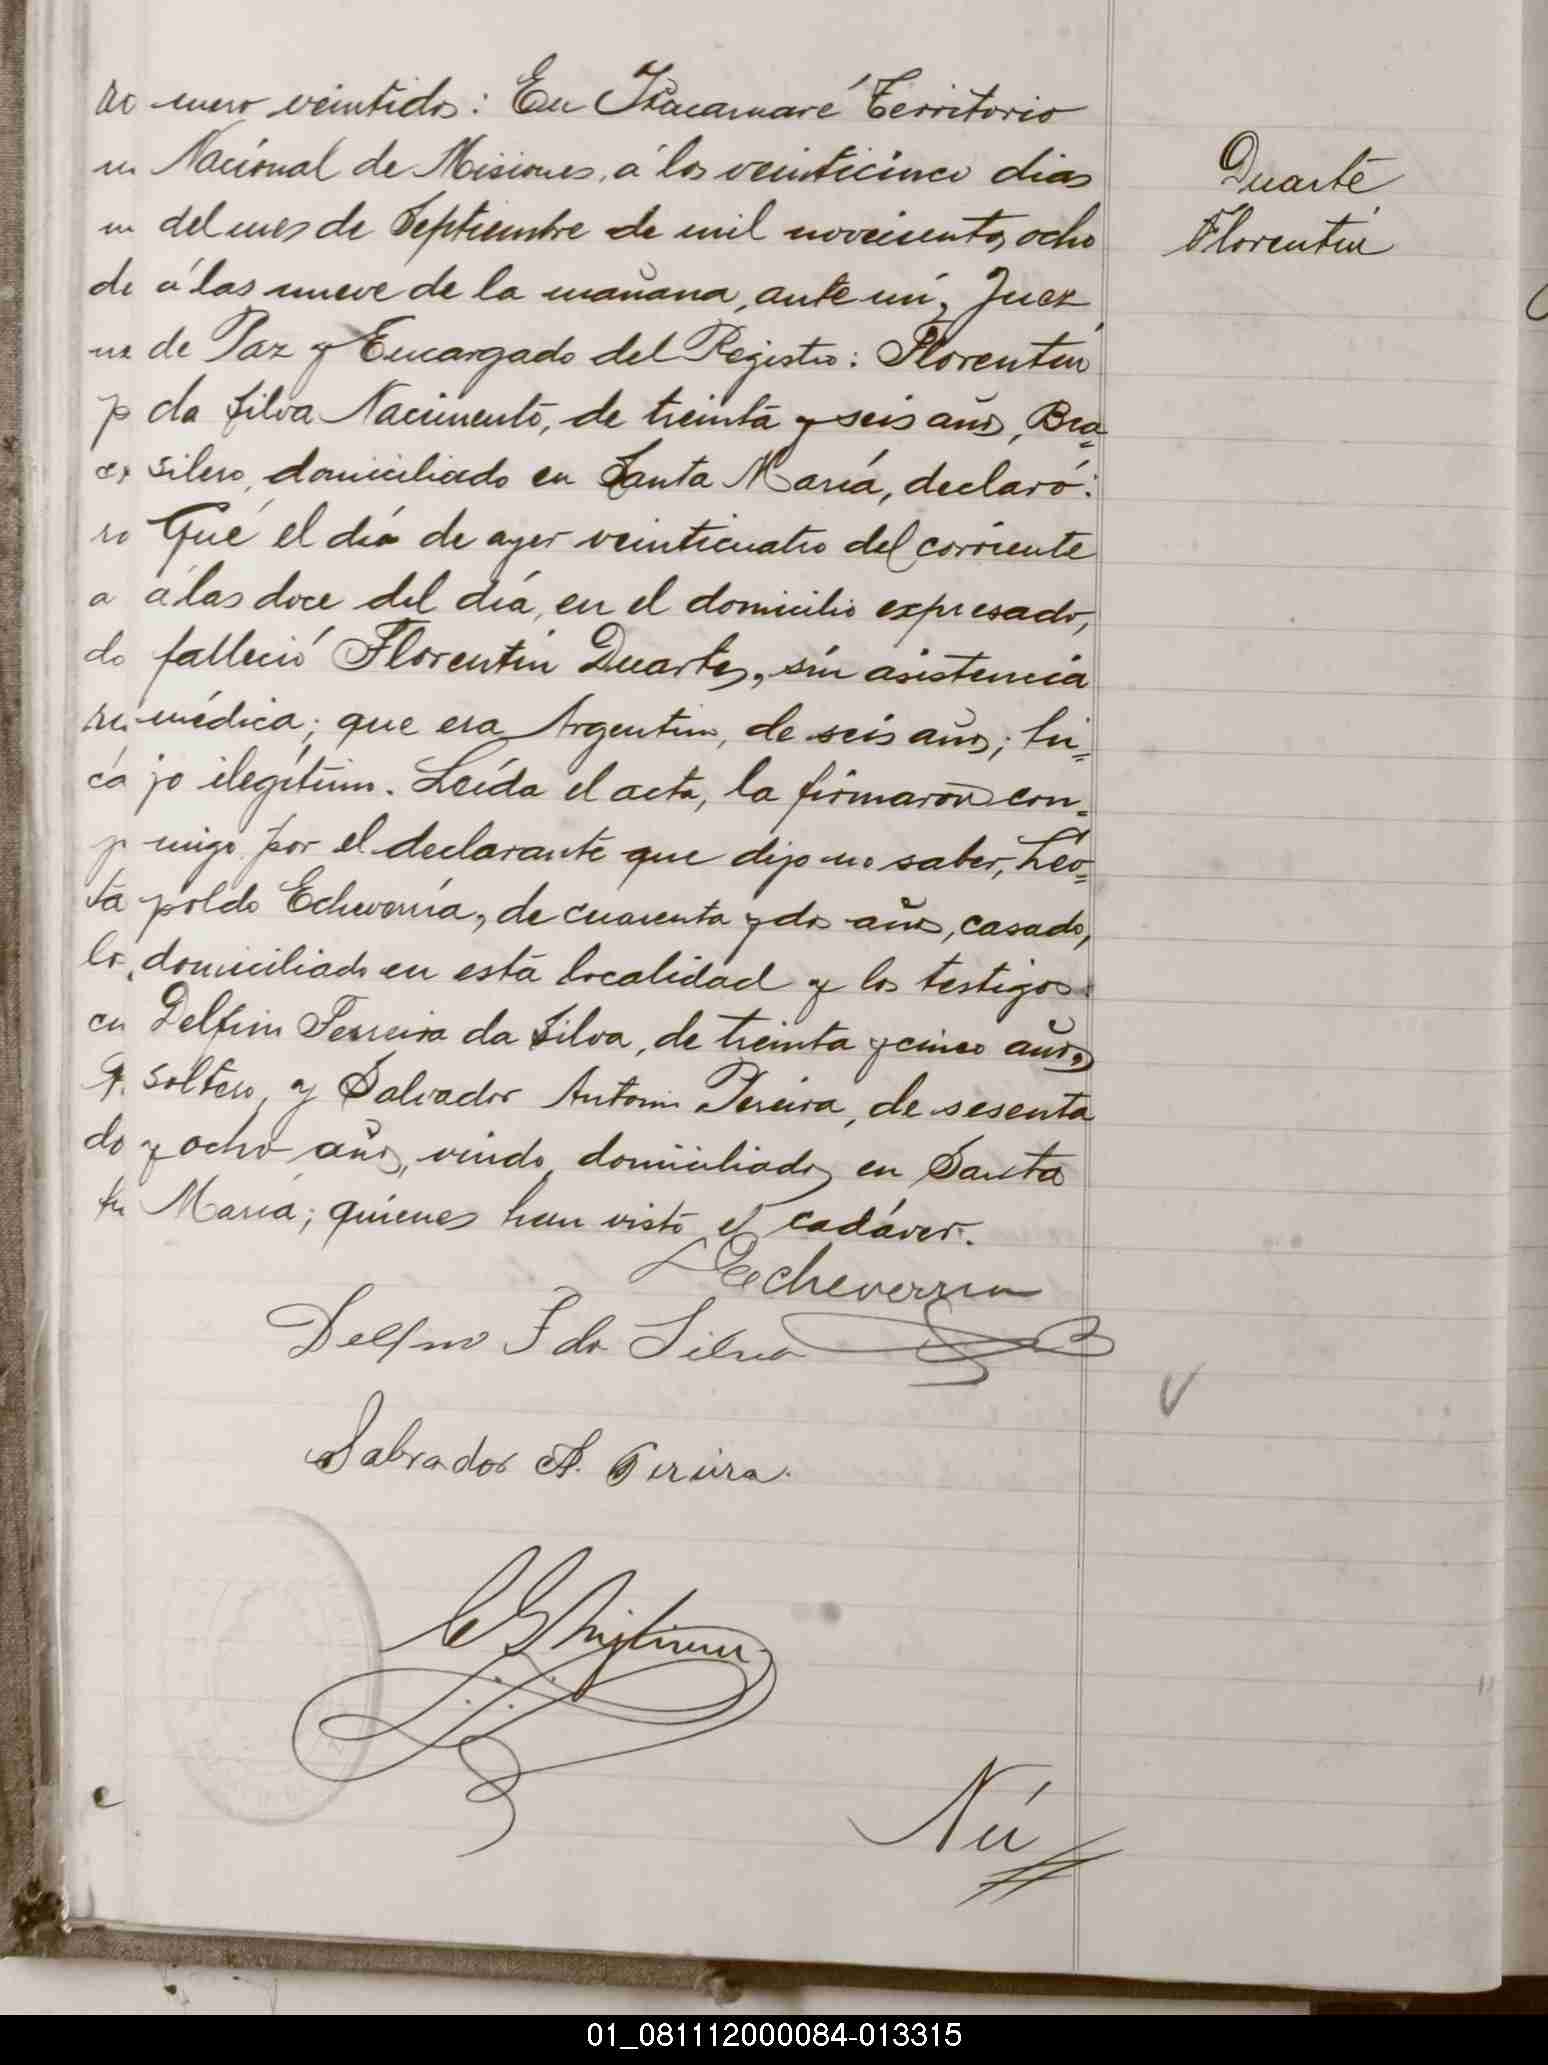 mero veintidos: En Itacaruaré Territorio
Nacional de Misiones, á los veinticinco dias
del mes de Septiembre de mil novecientos ocho
á las nueve de la mañana, ante mí, Juez
de Paz y Encargado del Registro: Florentin
da Silva Nacimento, de treinta y seis años, Bra=
silero, domiciliado en Santa María, declaró:
Que el día de ayer veinticuatro del corriente
á las doce del día, en el domicilio expresado,
falleció Florentin Duarte, sin asistencia
médica; que era Argentino, de seis años; hi=
jo ilegítimo. Leída el acta, la firmaron con=
migo por el declarante que dijo no saber, Leo=
poldo Echeverría, de cuarenta y dos años, casado,
domiciliado en esta localidad y los testigos
Delfin Ferreira da Silva, de treinta y cinco años,
soltero, y Salvador Antonio Pereira, de sesenta
y ocho años, viudo, domiciliados en Santa
María; quienes han visto el cadáver.
Duarte
Florentin
L Echeverria
Delfino F da Silva
Salvador A. Pereira.
Nú
01_081112000084-013315